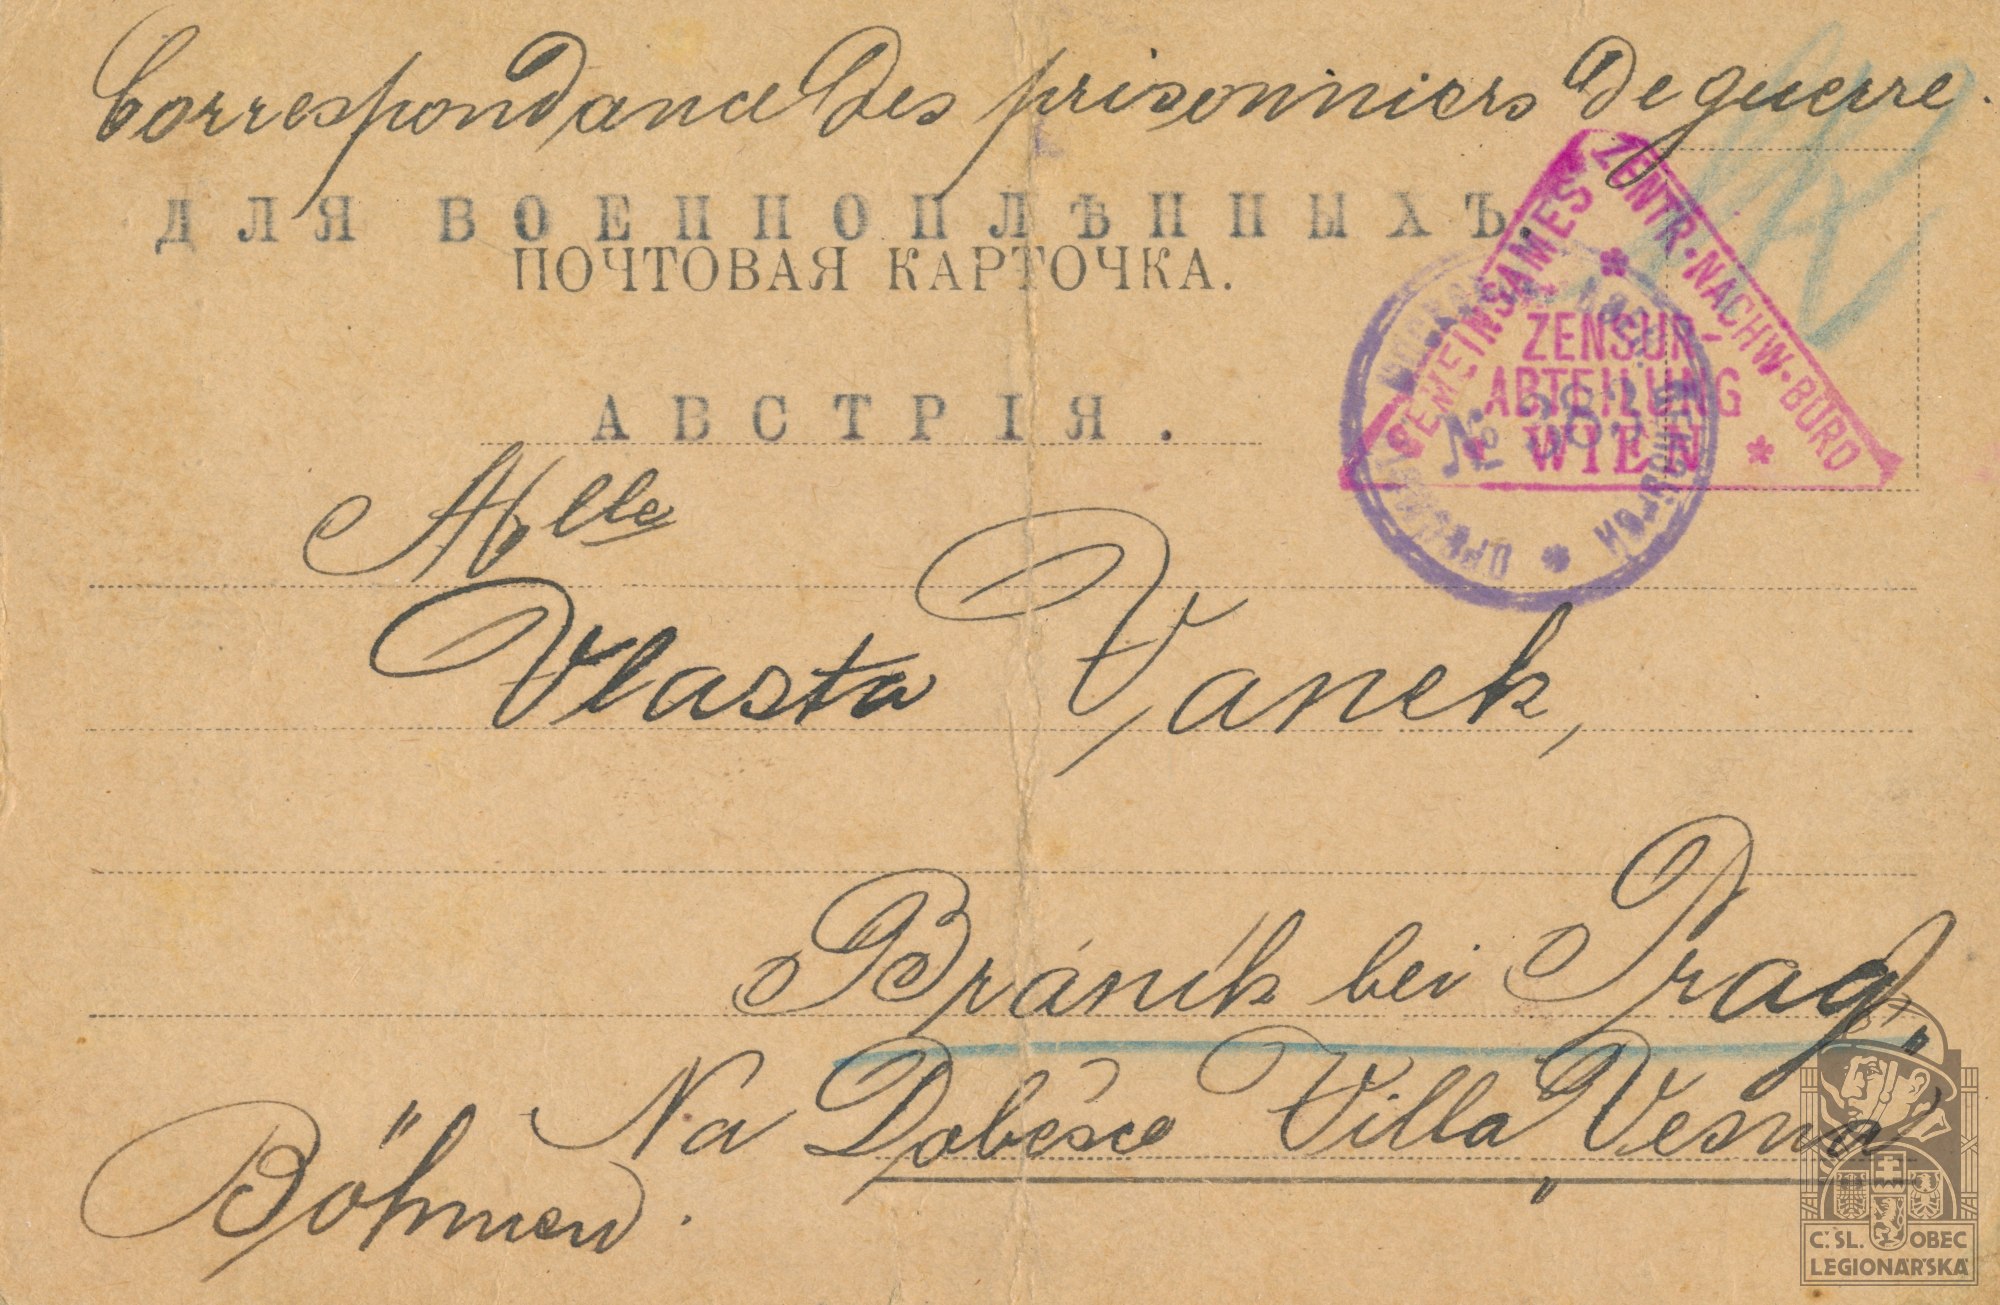 Correspondance des prisonniers de guerre.
ДЛЯ ВОЕННОПЛѢННЫХЪ.
ПОЧТОВАЯ КАРТОЧКА.
АВСТРІЯ.
GEMEINSAMES ZENTR·NACHW·BÜRO
ZENSUR-
ABTEILUNG
WIEN
№
Mlle
Vlasta Vanek,
Bráník bei Prag,
Na Dobešce Villa „Vesna"
Böhmen.
Č. SL. OBEC
LEGIONÁŘSKÁ